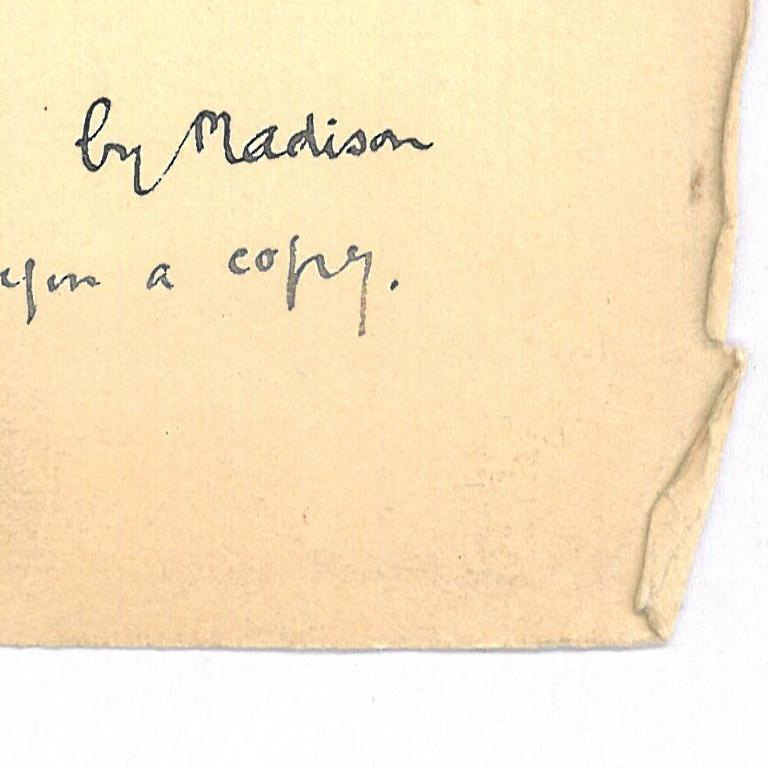 by Madison
a copy.